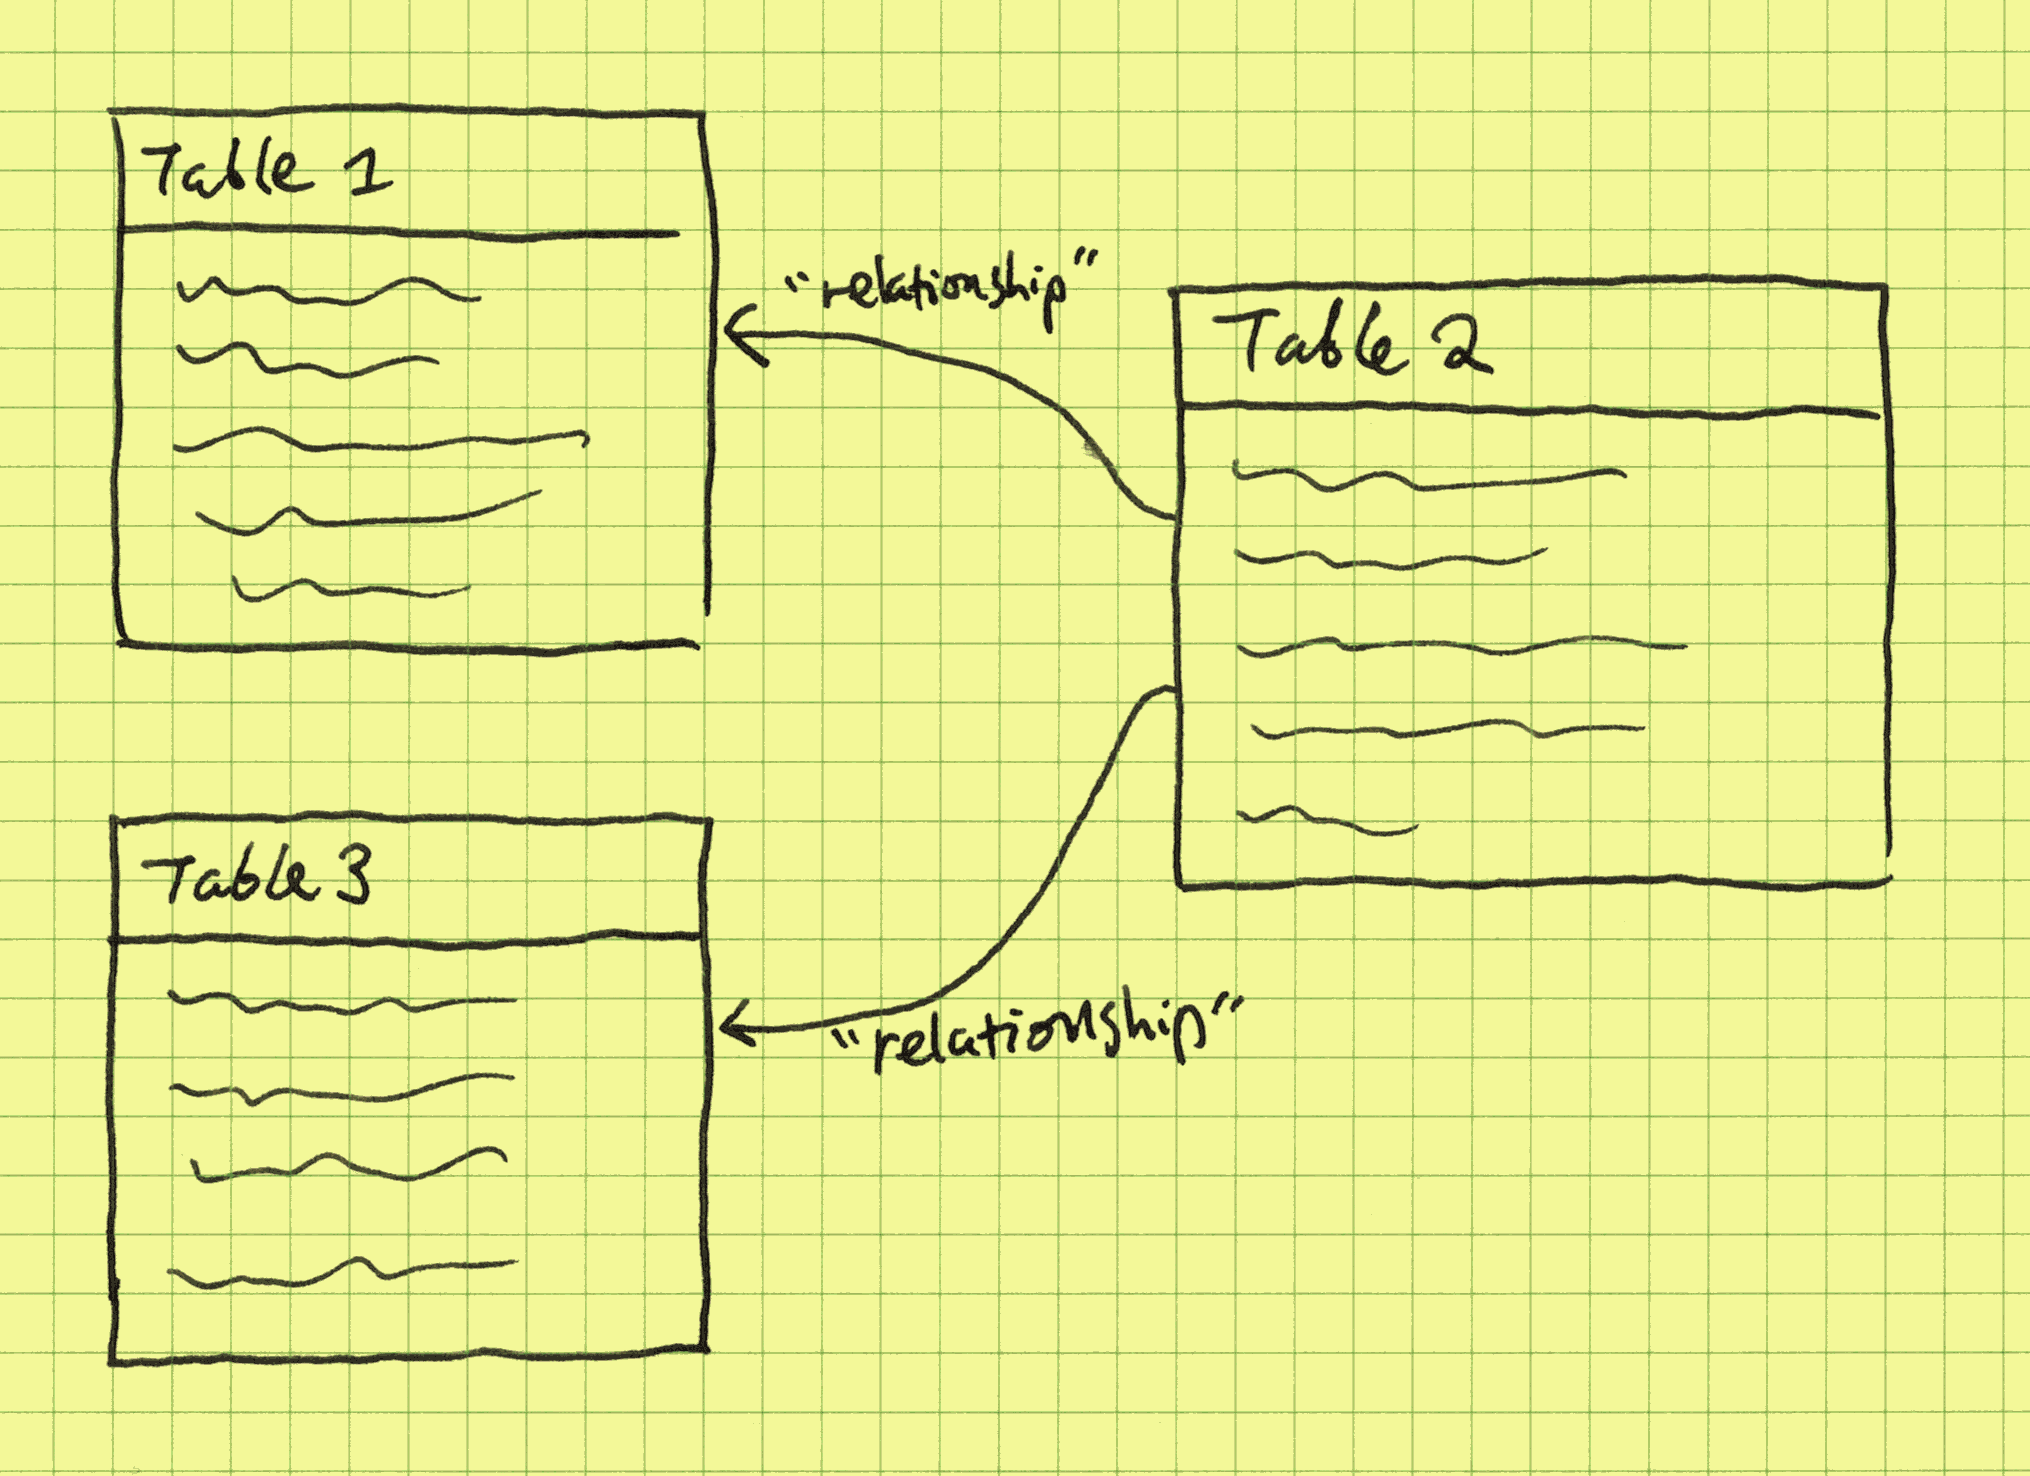 Table 1
"relationship"
Table 2
Table 3
"relationship"